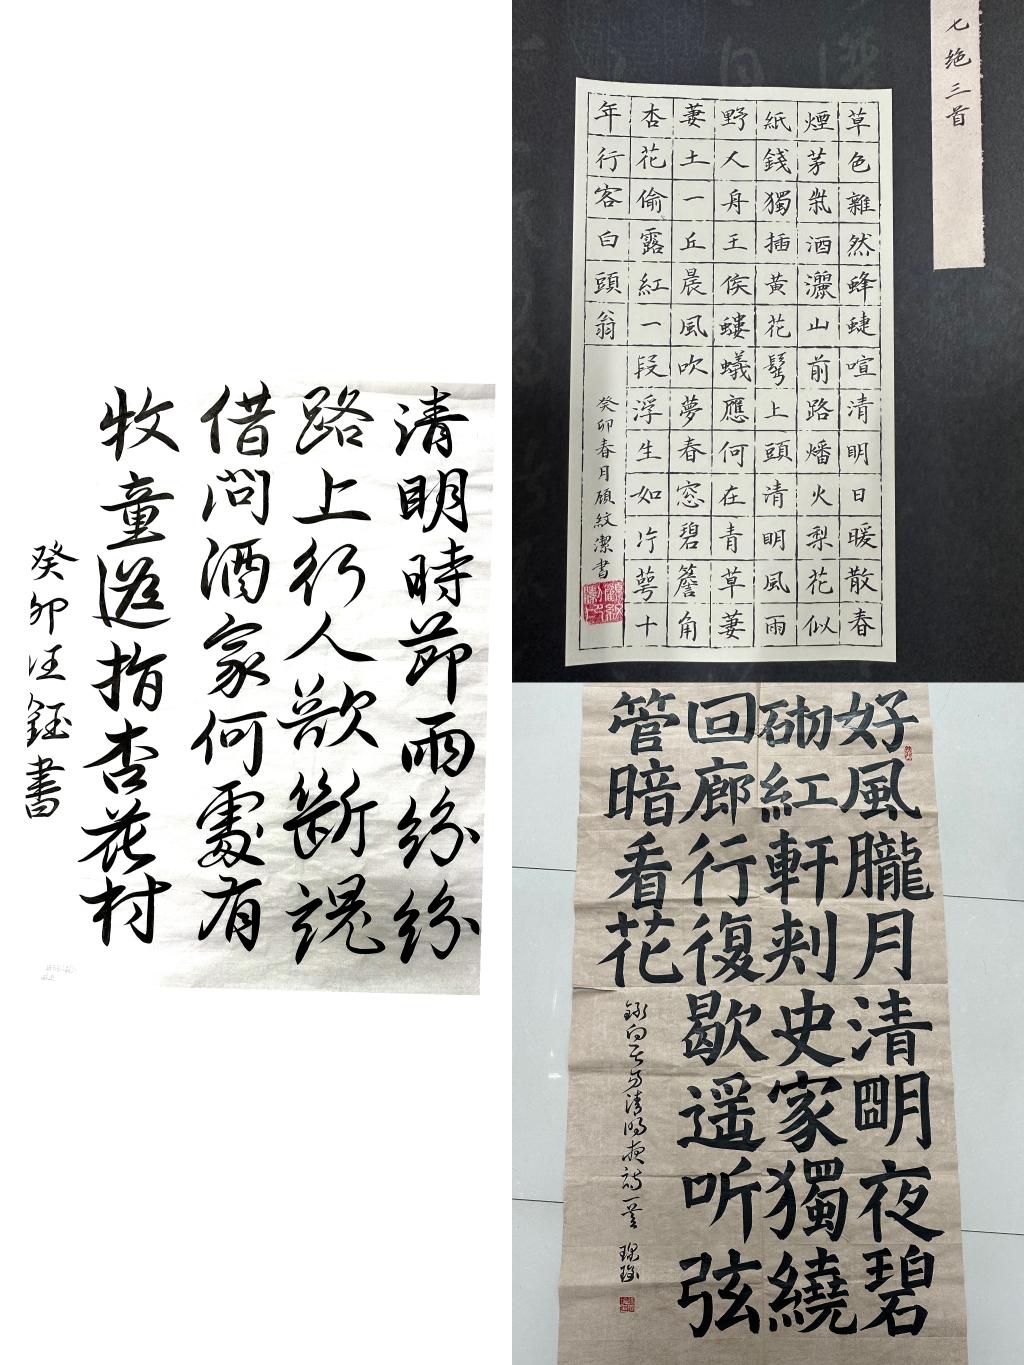 清明時節雨紛紛
路上行人欲斷魂
借問酒家何處有
牧童遥指杏花村
癸卯汪鈺書
七绝三首
草色雜然蜂蝶喧清明日暖散春
煙茅柴酒灑山前路燔火梨花似
紙錢獨插黃花髻上頭清明風雨
野人舟王侯螻蟻應何在青草萋
萋土一丘晨風吹夢春窓碧簷角
杏花偷露紅一段浮生如片萼十
年行客白頭翁
癸卯春月顧紋潔書
好風朧月清明夜碧
砌紅軒刺史家獨繞
回廊行復歇遥听弦
管暗看花
錄白居易清明夜詩一首